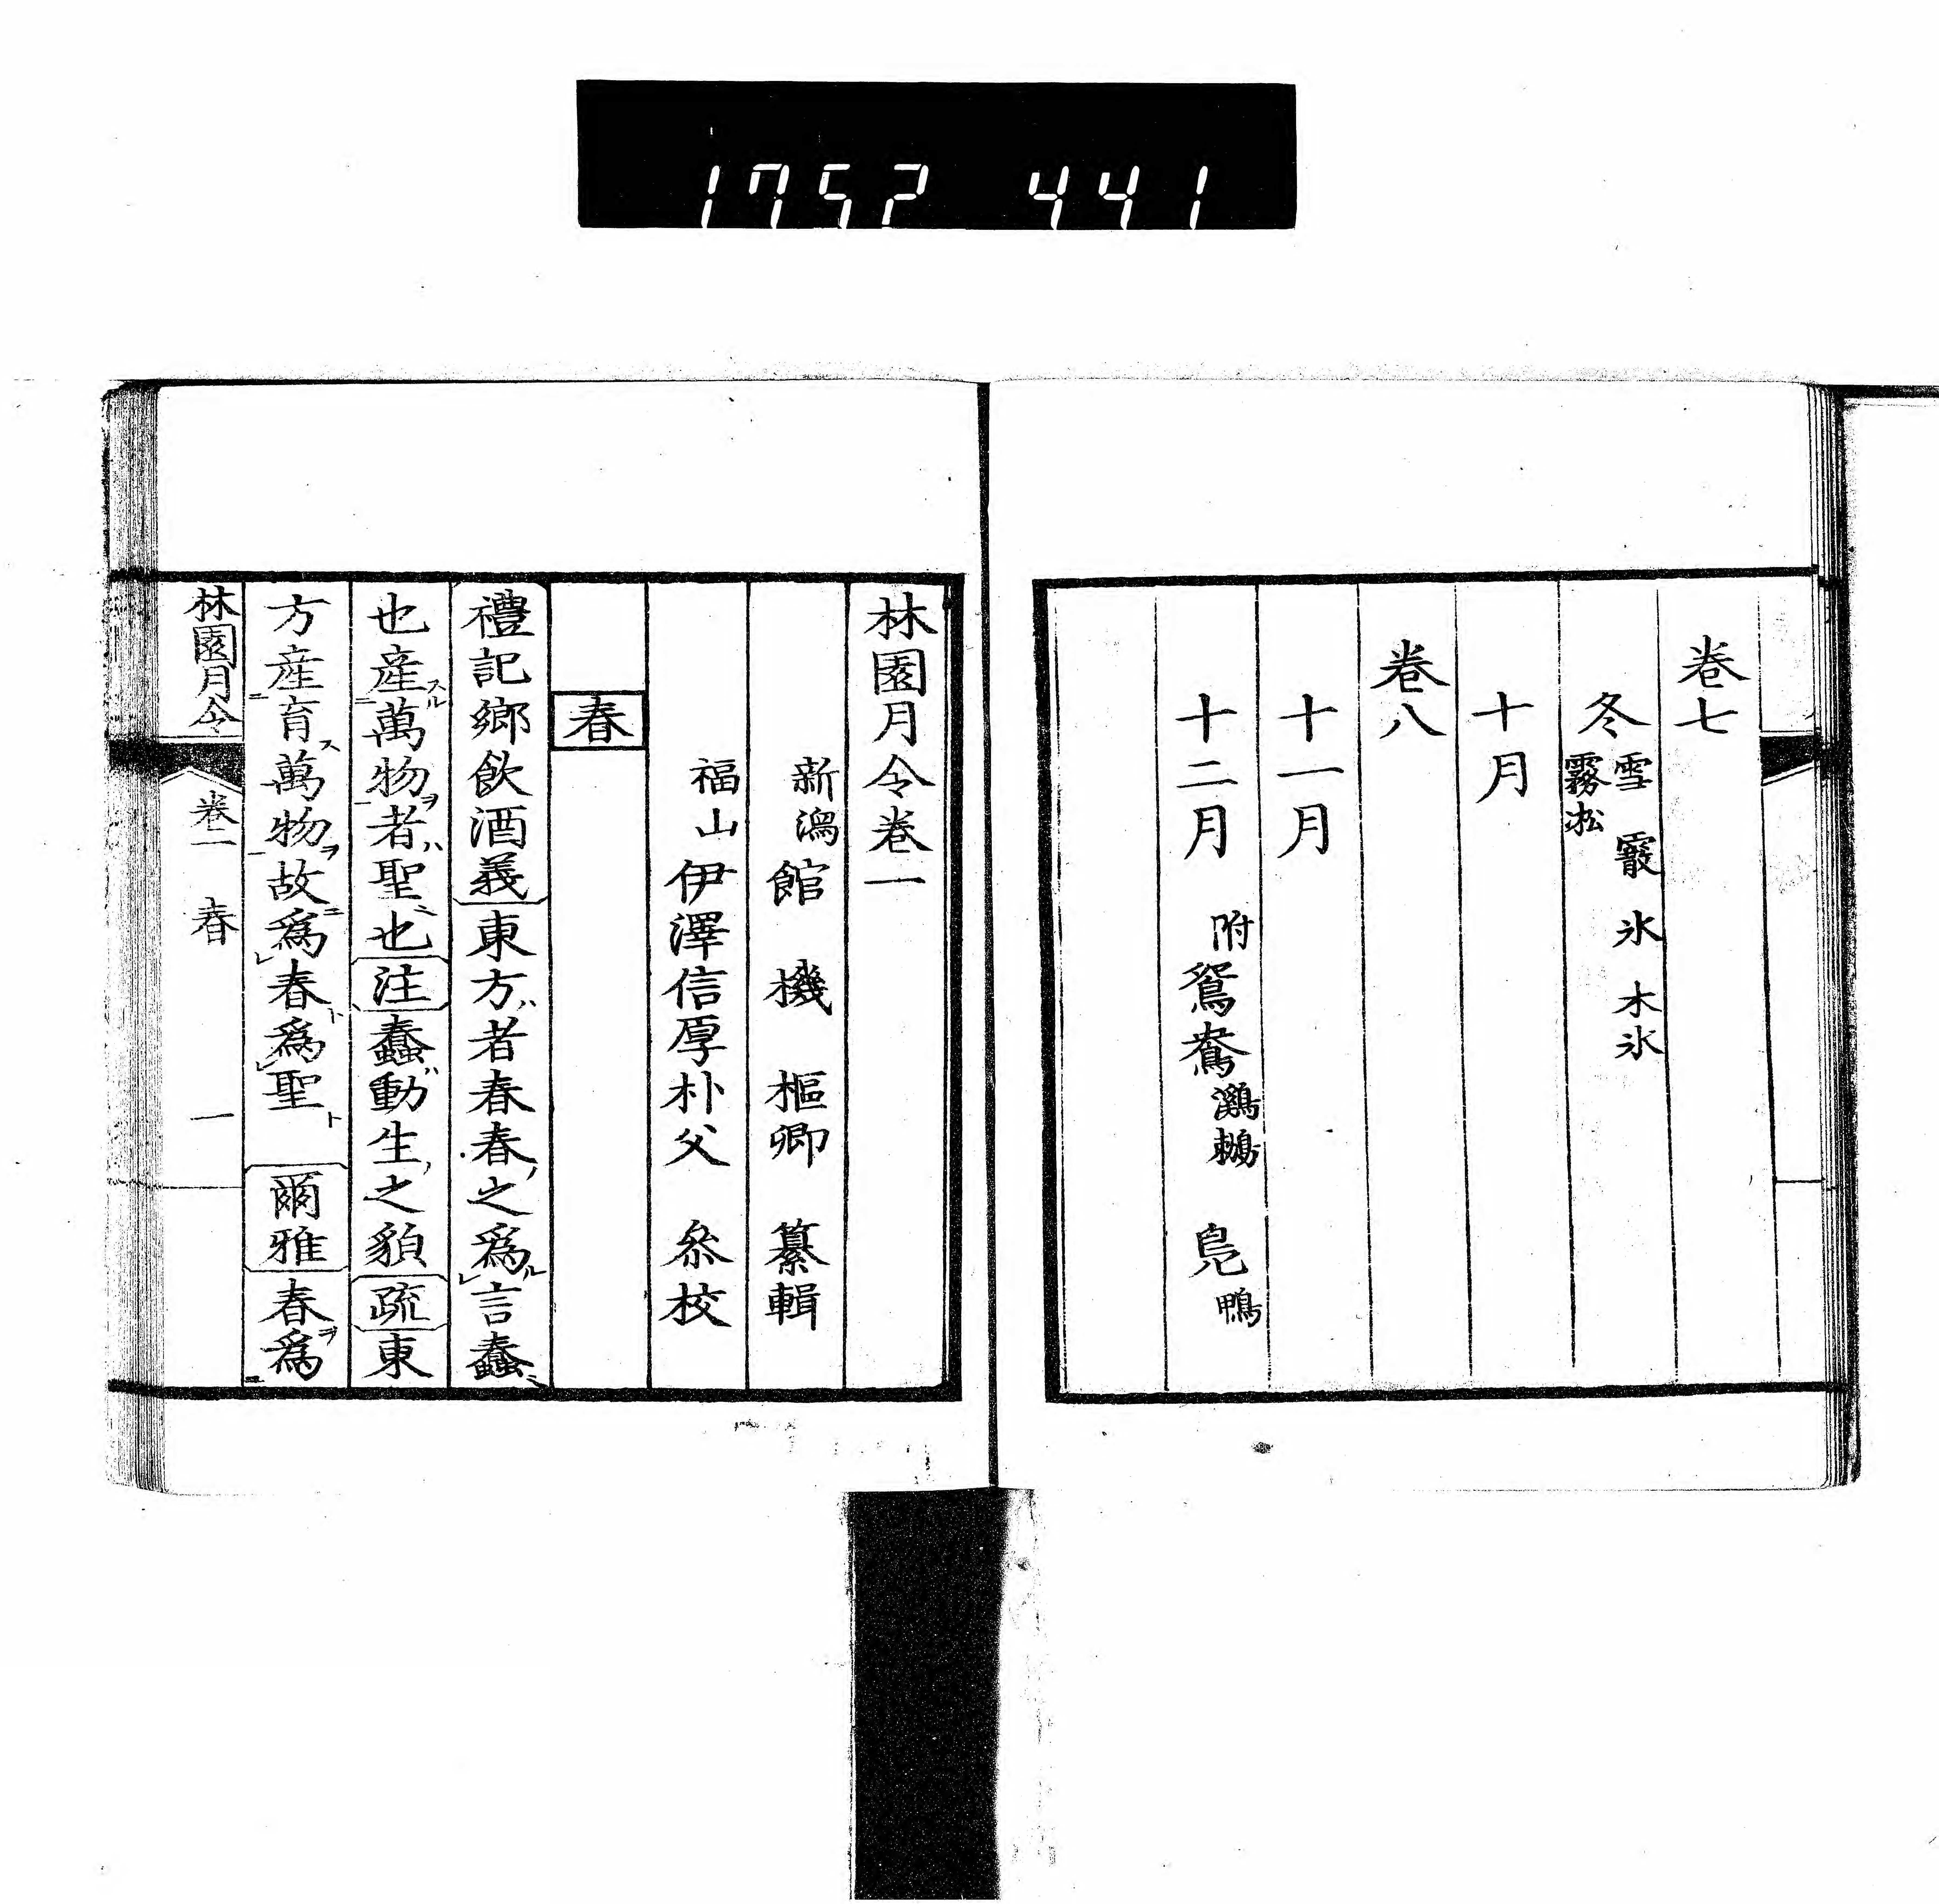 1752 441
卷七
冬 雪 霰 氷 木氷 霧凇
十月
卷八
十一月
十二月 附 鴛鴦 鸂鶒 鳬 鴨
林園月令卷一
新潟 館 機 樞卿 纂輯
福山 伊澤信厚朴父 叅校
春
禮記鄉飲酒義東方者春春之爲言蠢
也產萬物者聖也注蠢動生之貌疏東
方產育萬物故爲春爲聖 爾雅春爲
林園月令 卷一 春 一